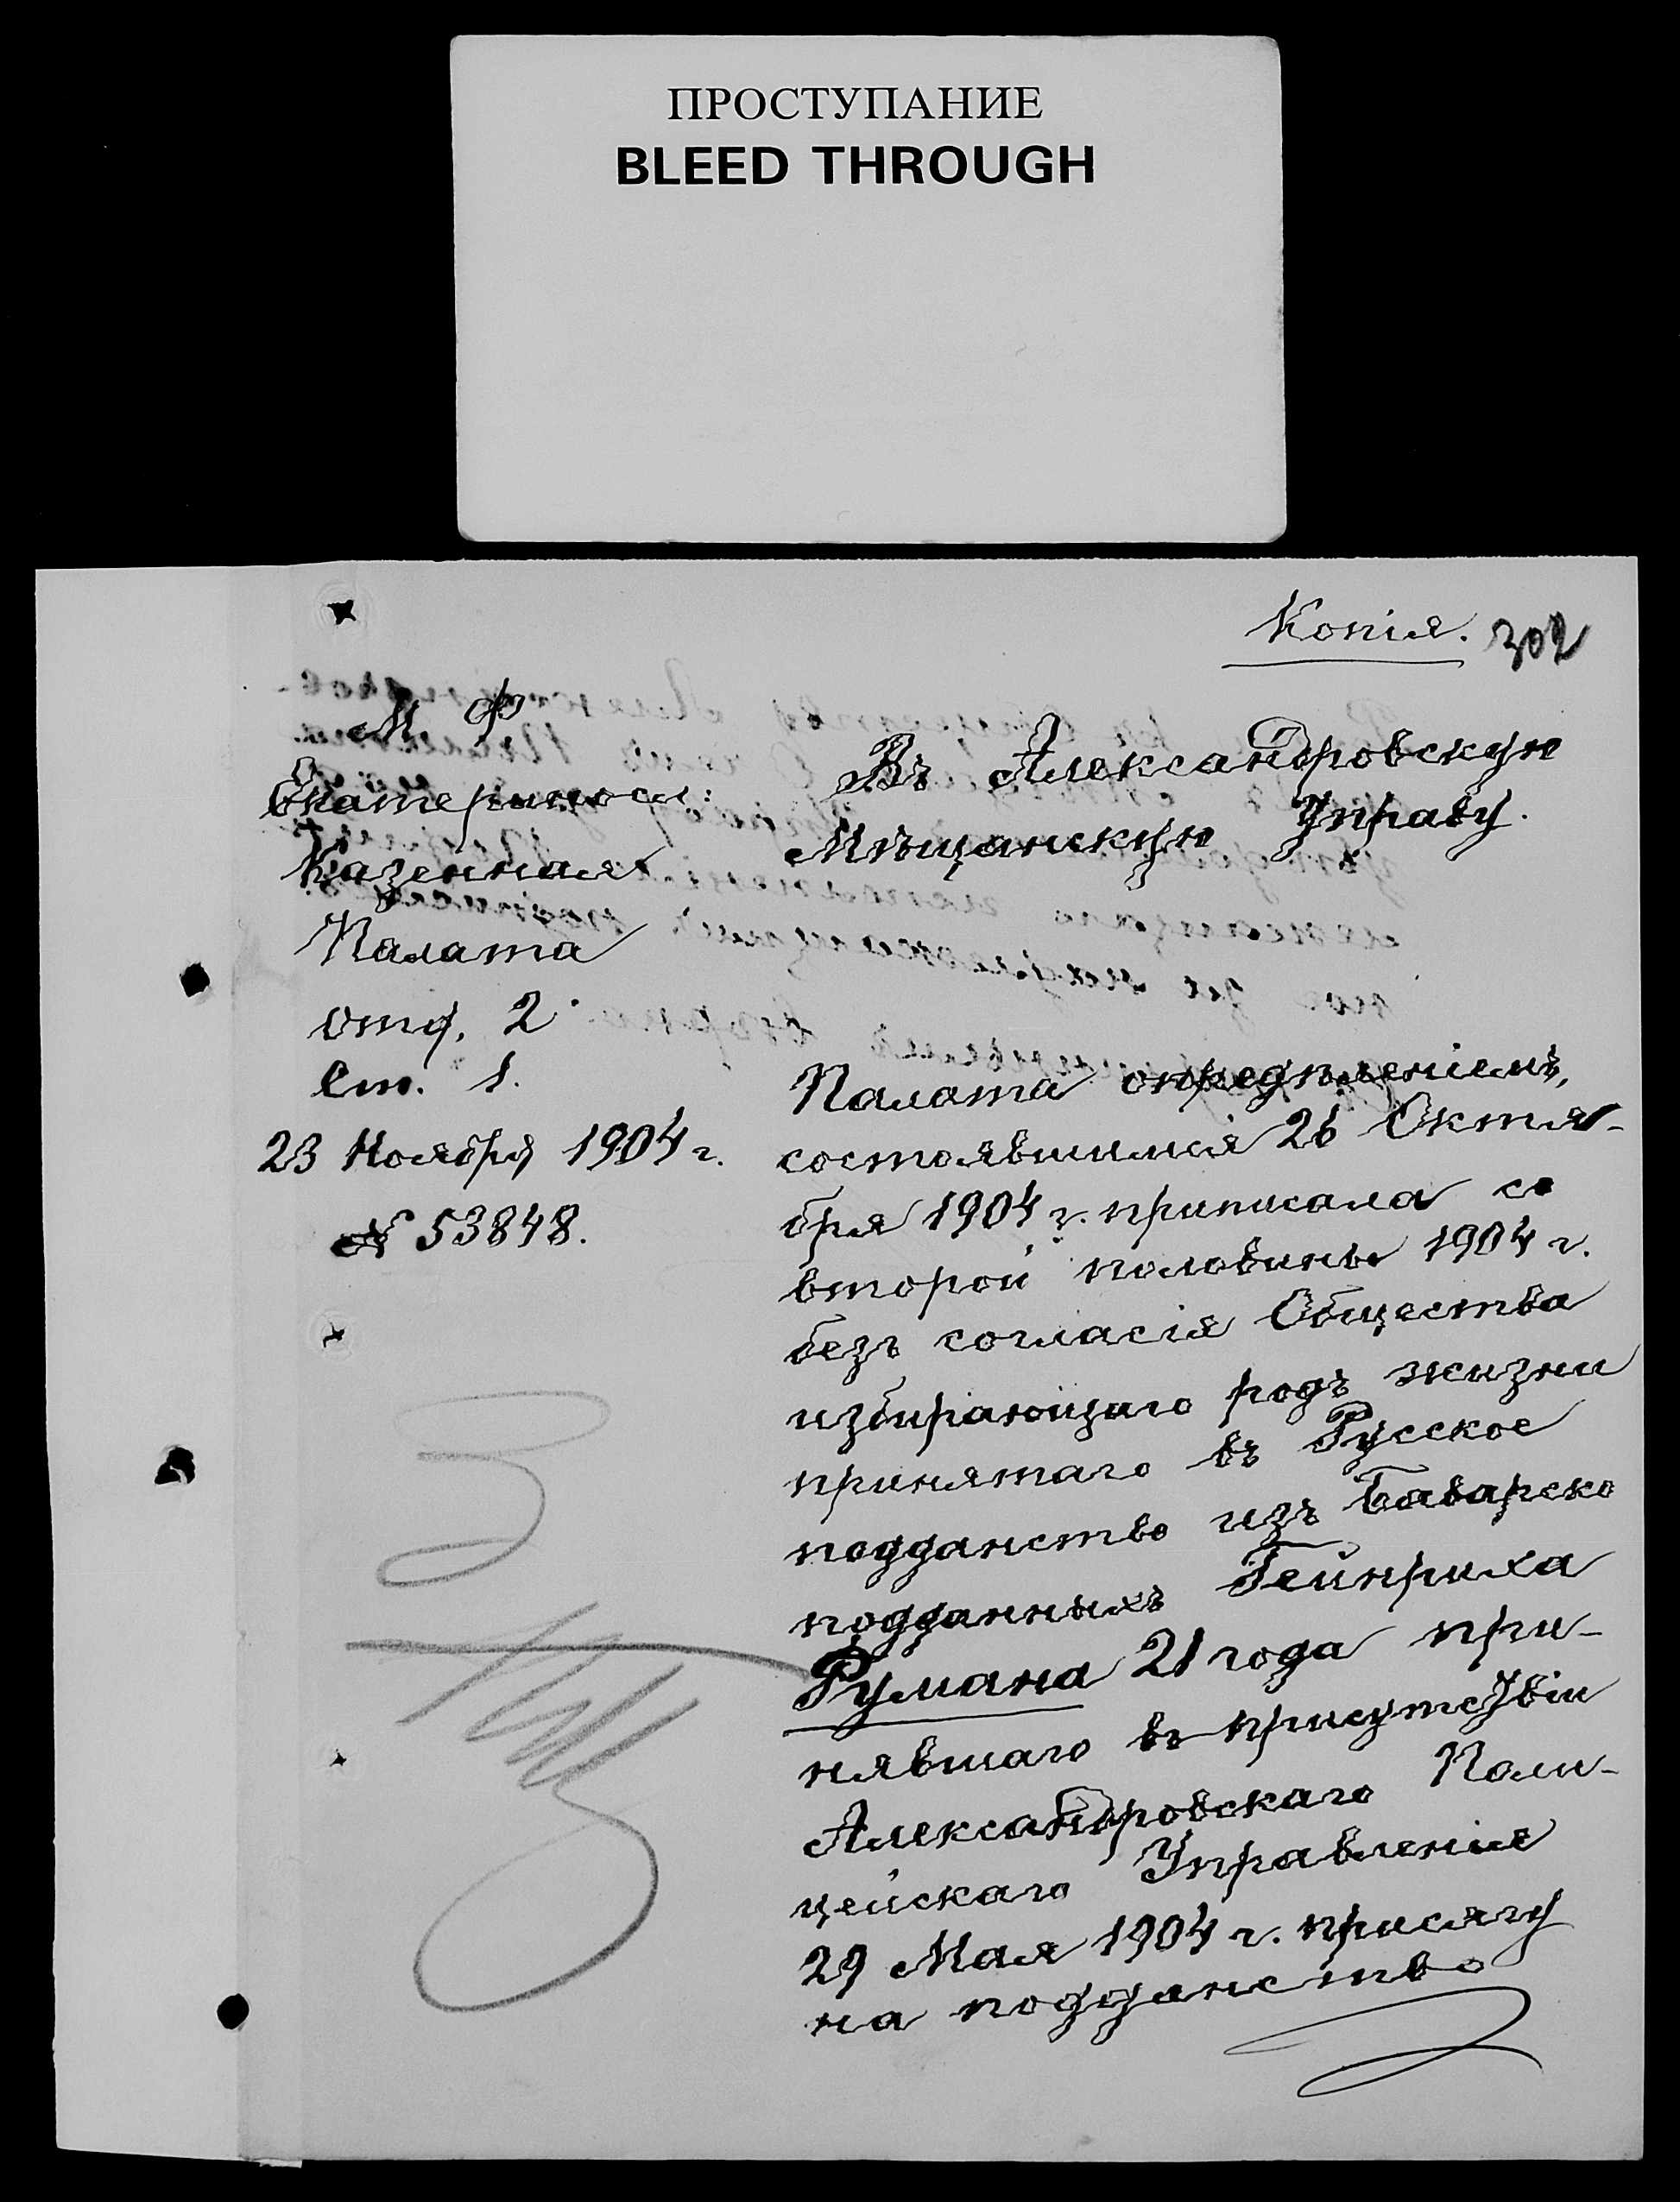 ПРОСТУПАНИЕ
BLEED THROUGH
Копія. 302
М. Ф.
Екатериносл:
Казенная
Палата
отд. 2
Ст. 1.
23 Ноября 1904 г.
№ 53848.
Въ Александровскую
Мѣщанскую Управу.
Палата опредѣленіемъ,
состоявшимся 26 Октя-
бря 1904 г. приписала со
второй половины 1904 г.
безъ согласія Общества
избирающаго родъ жизни
принятаго въ Русское
подданство изъ Баварско
подданныхъ Гейнриха
Румана 21 года при-
нявшаго въ присутствіи
Александровскаго Поли-
цейскаго Управленія
29 Мая 1904 г. присягу
на подданство